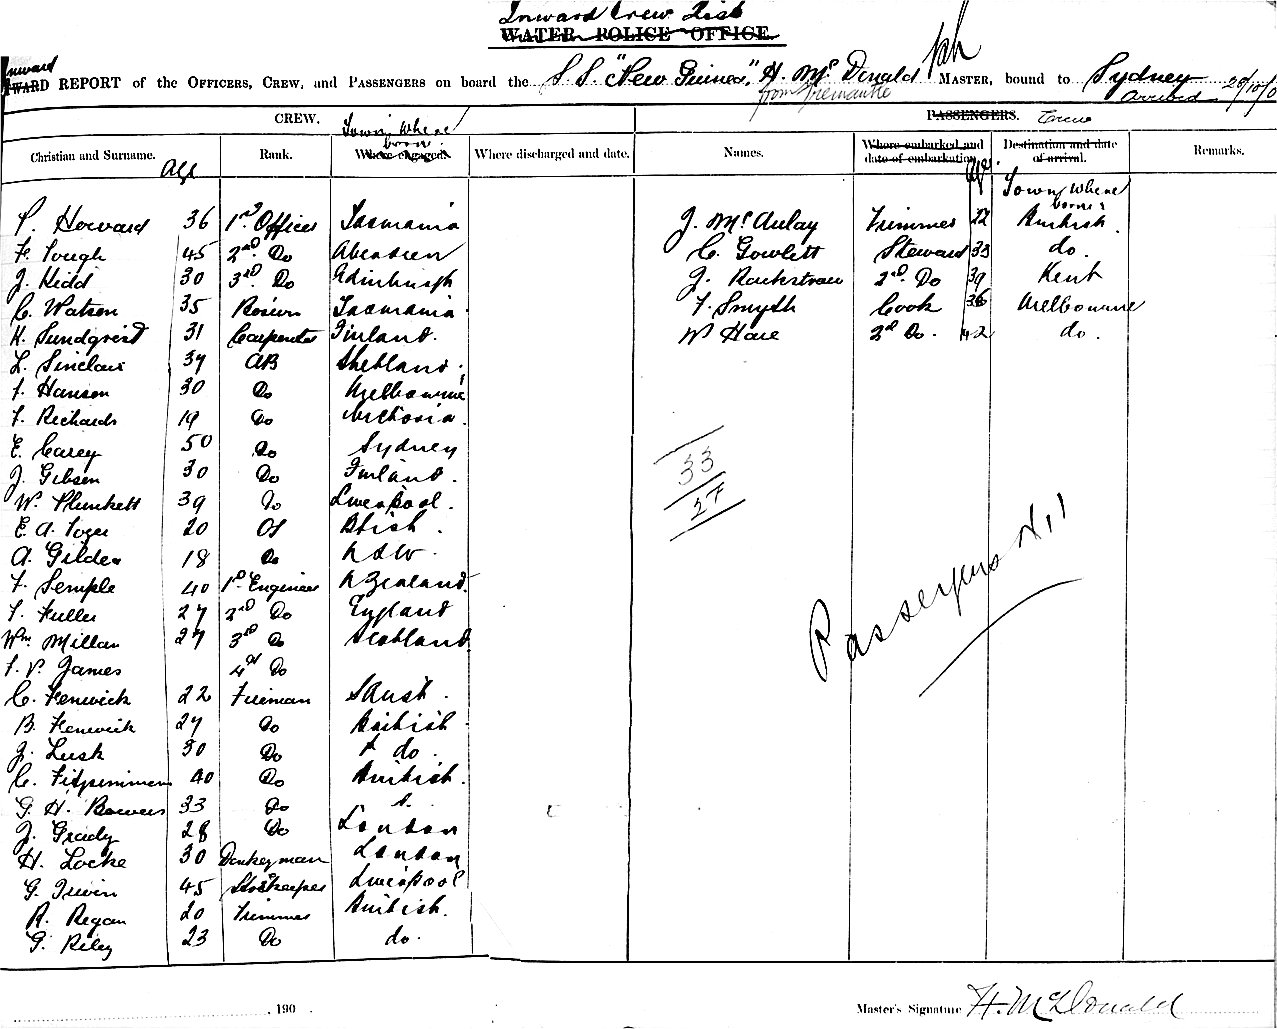 Inward Crew List
WATER POLICE OFFICE.
Inward
REPORT of the OFFICERS, CREW, and PASSENGERS on board the S.S. "New Guinea", H. McDonald MASTER, bound to Sydney
from Fremantle
Arrived
CREW. PASSENGERS. Crew
Christian and Surname. Age Rank. Town where born. Where engaged. Where discharged and date. Names. Where embarked and date of embarkation. Age. Destination and date of arrival. Remarks.
Town where born
P. Howard 36 1st Officer Tasmania J. McAulay Trimmer 22 British
F. Tough 45 2nd Do Aberdeen C. Gowlett Steward 33 do.
J. Kidd 30 3rd. Do Edinburgh J. Rackstraw 2nd. Do 39 Kent
C. Watson 35 Bosun Tasmania F. Smyth Cook 36 Melbourne
H. Sundqvist 31 Carpenter Finland. W Hare 2nd Do. 42 do.
L. Sinclair 37 AB Shetland.
T. Hanson 30 Do Melbourne
T. Richards 19 Do Victoria.
E. Carey 50 Do Sydney
J. Gibson 30 Do Finland.
W. Plunkett 39 Do Liverpool.
33
27
E. A. 20 OS
A. Gilder 18 Do N S W.
F. Semple 40 1st. Engineer N Zealand.
T. Fuller 27 2nd Do England
Wm. Millan 27 3rd Do Scotland
T. V. James 4th Do
Passengers Nil
C. Fenwick 22 Fireman S Aust.
B. Fenwick 27 Do British
J. Lusk 30 Do do.
C. Fitzsimmons 40 Do British.
G. H. Bowers 33 Do
J. Grady 28 Do London
H. Locke 30 Donkeyman London
G. Irwin 45 Storekeeper Liverpool
R. Regan 20 Trimmer British.
G. Riley 23 Do do.
190 . Master's Signature H. McDonald